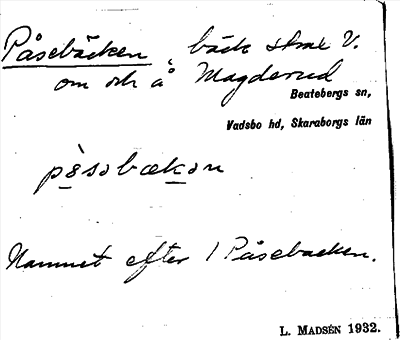 Påsebäcken, bäck strax V.
om och å Magderud
Beatebergs sn,
Vadsbo hd, Skaraborgs län
pòsəbækən
Namnet efter 1 Påsebacken.
L. MADSÉN 1932.